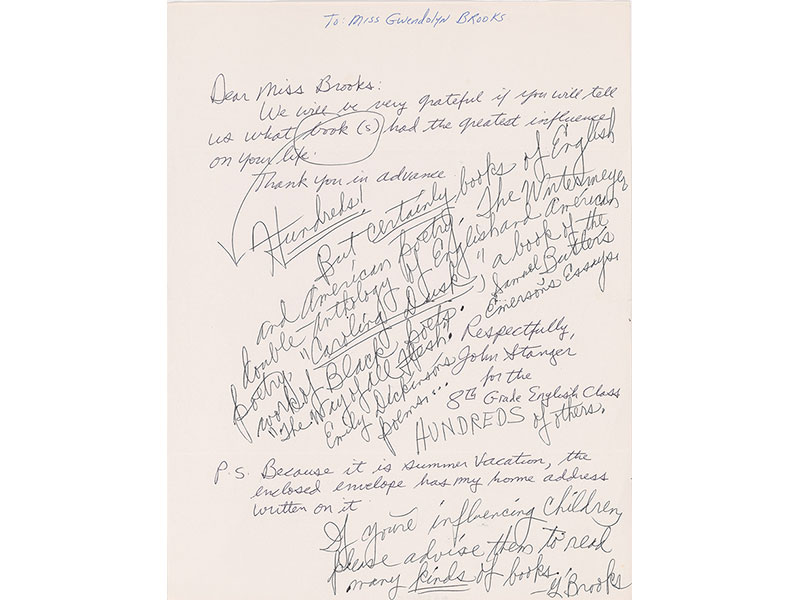 To: Miss Gwendolyn Brooks
Dear Miss Brooks:
We will be very grateful if you will tell
us what book(s) had the greatest influence
on your life.
Thank you in advance
Hundreds!
But certainly books of English
and American poetry. The Wintermeyer
double anthology of English and American
poetry, "Caroling Dusk," a book of the
work of Black poets. Samuel Butler's
"The Way of all Flesh". Emerson's Essays.
Emily Dickinson's
poems...
Respectfully,
John Stanger
for the
8th Grade English Class
HUNDREDS of others.
P.S. Because it is summer vacation, the
enclosed envelope has my home address
written on it
If you're influencing children,
please advise them to read
many kinds of books.
-G Brooks